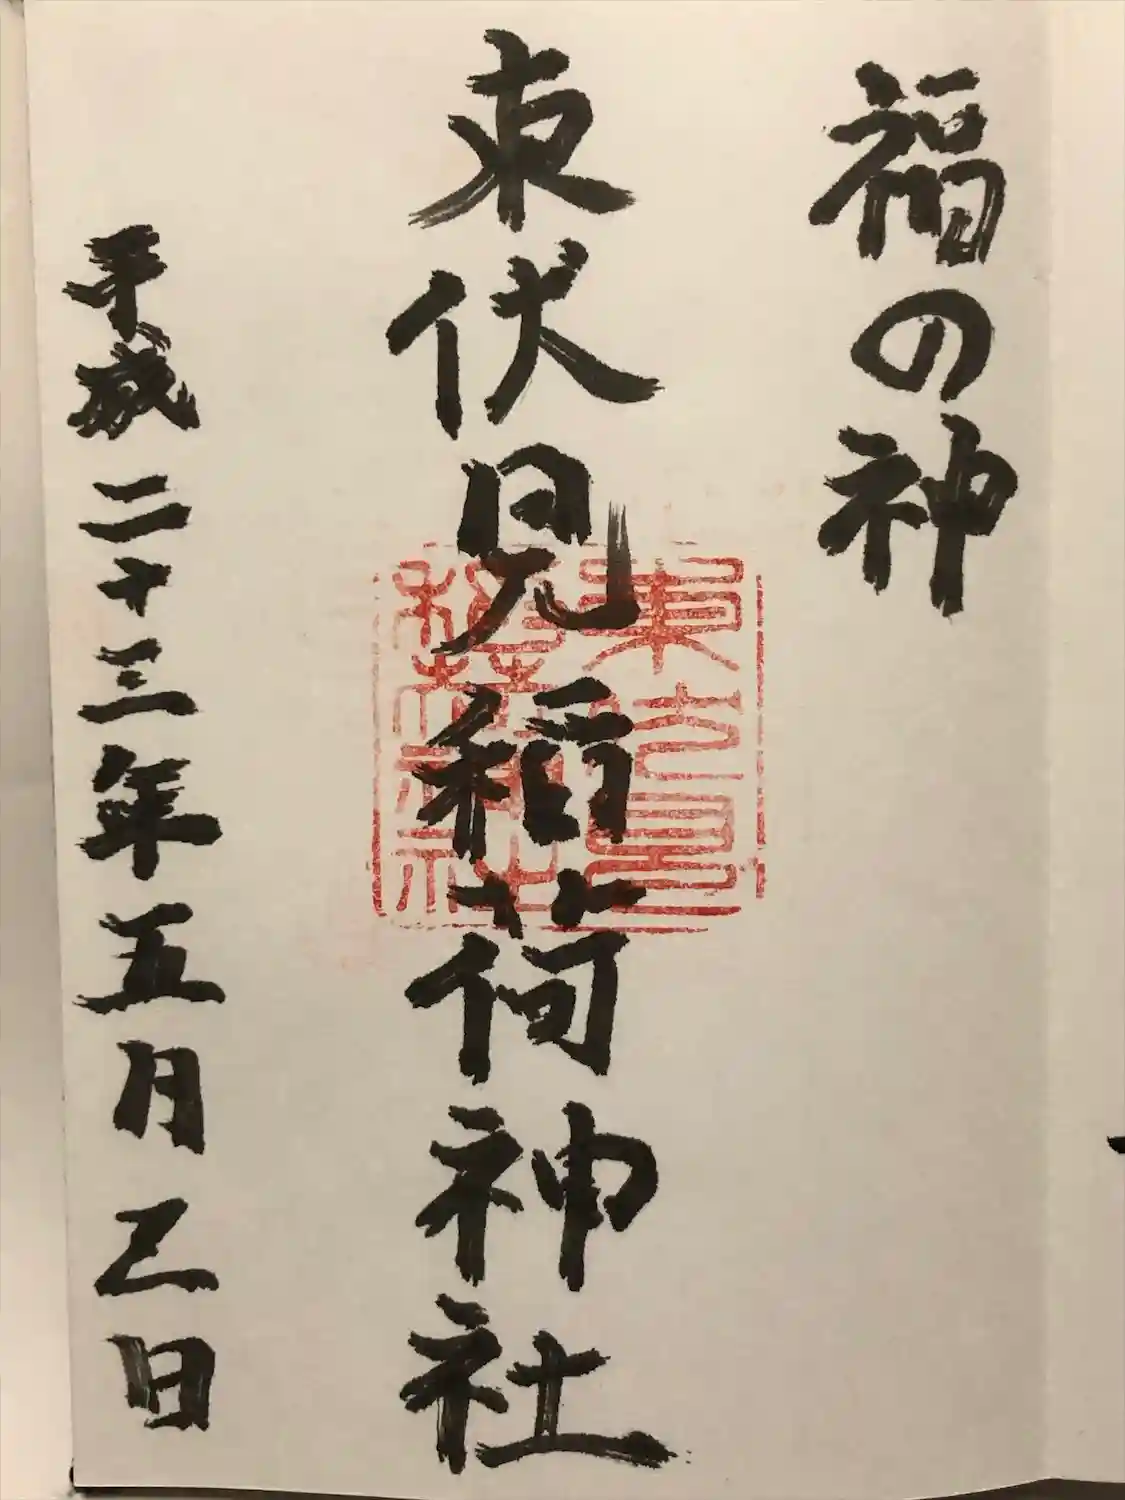 福の神
東伏見稲荷神社
平成二十三年五月乙日
東伏見
稲荷神社